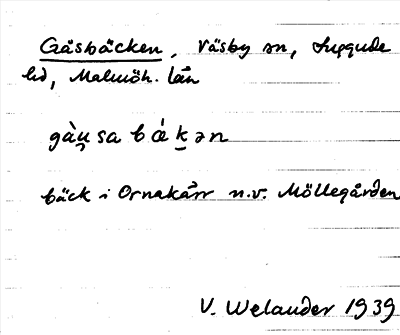 Gåsbäcken, Väsby sn, Luggude
hd, Malmöh. län
gàu̯sa bákən
bäck i Ornakärr n.v. Möllegården
V. Welander 1939